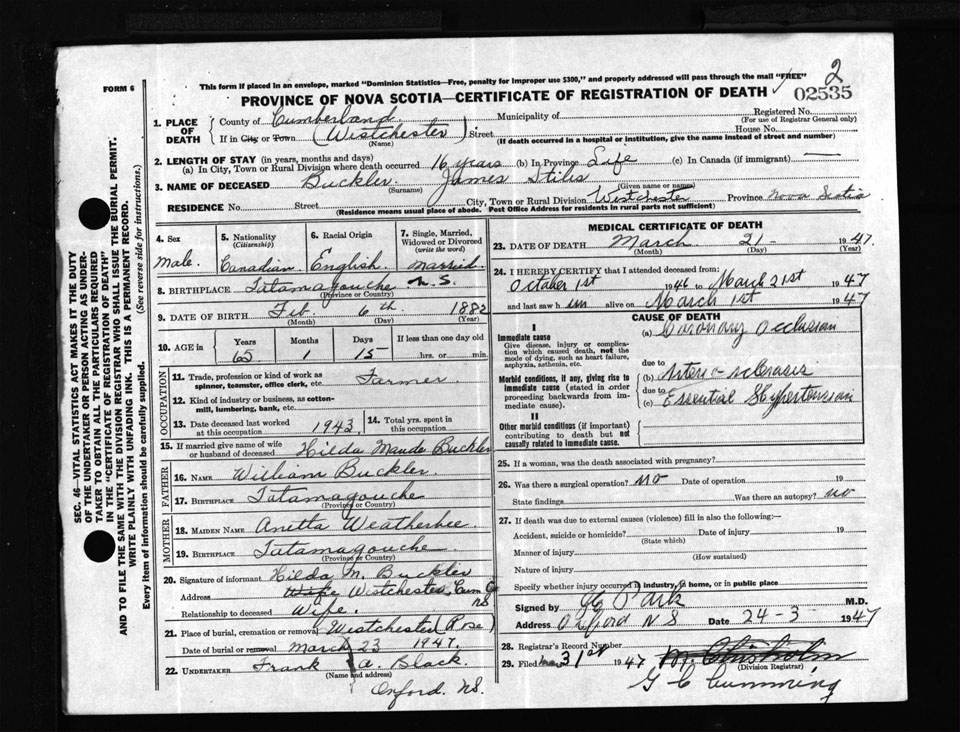 2
FORM 6
This form if placed in an envelope, marked "Dominion Statistics—Free, penalty for improper use $300," and properly addressed will pass through the mail "FREE"
PROVINCE OF NOVA SCOTIA—CERTIFICATE OF REGISTRATION OF DEATH 02535
1. PLACE OF DEATH County of Cumberland Municipality of Registered No.
(For use of Registrar General only)
If in City or Town (Westchester) Street House No.
(Name) (If death occurred in a hospital or institution, give the name instead of street and number)
2. LENGTH OF STAY (in years, months and days)
(a) In City, Town or Rural Division where death occurred 16 years (b) In Province Life (c) In Canada (if immigrant) —
3. NAME OF DECEASED Buckler James Stiles
(Surname) (Given name or names)
RESIDENCE No. Street City, Town or Rural Division Westchester Province Nova Scotia
(Residence means usual place of abode. Post Office Address for residents in rural parts not sufficient)
SEC. 46—VITAL STATISTICS ACT MAKES IT THE DUTY
OF THE UNDERTAKER OR PERSON ACTING AS UNDER-
TAKER TO OBTAIN ALL THE PARTICULARS REQUIRED
IN THE "CERTIFICATE OF REGISTRATION OF DEATH"
AND TO FILE THE SAME WITH THE DIVISION REGISTRAR WHO SHALL ISSUE THE BURIAL PERMIT.
WRITE PLAINLY WITH UNFADING INK. THIS IS A PERMANENT RECORD.
Every item of information should be carefully supplied. (See reverse side for instructions.)
4. Sex 5. Nationality (Citizenship) 6. Racial Origin 7. Single, Married, Widowed or Divorced (write the word)
Male. Canadian. English. Married.
8. BIRTHPLACE Tatamagouche N.S.
(Province or Country)
9. DATE OF BIRTH Feb. 6th 1882
(Month) (Day) (Year)
10. AGE in Years Months Days If less than one day old
65 1 15 hrs. or min.
OCCUPATION
11. Trade, profession or kind of work as Farmer.
spinner, teamster, office clerk, etc.
12. Kind of industry or business, as cotton-
mill, lumbering, bank, etc.
13. Date deceased last worked at this occupation 1943 14. Total yrs. spent in this occupation
15. If married give name of wife or husband of deceased Hilda Maude Buckler
FATHER
16. NAME William Buckler.
17. BIRTHPLACE Tatamagouche
(Province or Country)
MOTHER
18. MAIDEN NAME Anetta Weatherbee.
19. BIRTHPLACE Tatamagouche
(Province or Country)
20. Signature of informant Hilda M. Buckler
Address Wife Westchester, Cum Co NS
Relationship to deceased Wife.
21. Place of burial, cremation or removal Westchester (Rose)
Date of burial or removal March 23 1947.
22. UNDERTAKER Frank A. Black.
(Name and address)
Oxford. NS.
MEDICAL CERTIFICATE OF DEATH
23. DATE OF DEATH March 21 1947.
(Month) (Day) (Year)
24. I HEREBY CERTIFY that I attended deceased from:
October 1st 1946 to March 21st 1947
and last saw h im alive on March 1st 1947
CAUSE OF DEATH
I
Immediate cause (a) Coronary Occlusion
Give disease, injury or complica-
tion which caused death, not the
mode of dying, such as heart failure,
asphyxia, asthenia, etc.
due to
Morbid conditions, if any, giving rise to (b) Arterio-sclerosis
immediate cause (stated in order due to
proceeding backwards from im- (c) Essential Hypertension
mediate cause).
II
Other morbid conditions (if important)
contributing to death but not
causally related to immediate cause.
25. If a woman, was the death associated with pregnancy?
26. Was there a surgical operation? no Date of operation 19
State findings Was there an autopsy? no
27. If death was due to external causes (violence) fill in also the following:—
Accident, suicide or homicide? Date of injury 19
(State which)
Manner of injury
(How sustained)
Nature of injury
Specify whether injury occurred in industry, in home, or in public place
Signed by Park M.D.
Address Oxford N S Date 24-3- 1947
28. Registrar's Record Number
29. Filed 31st 1947 M. Chisholm
(Division Registrar)
G C Cumming